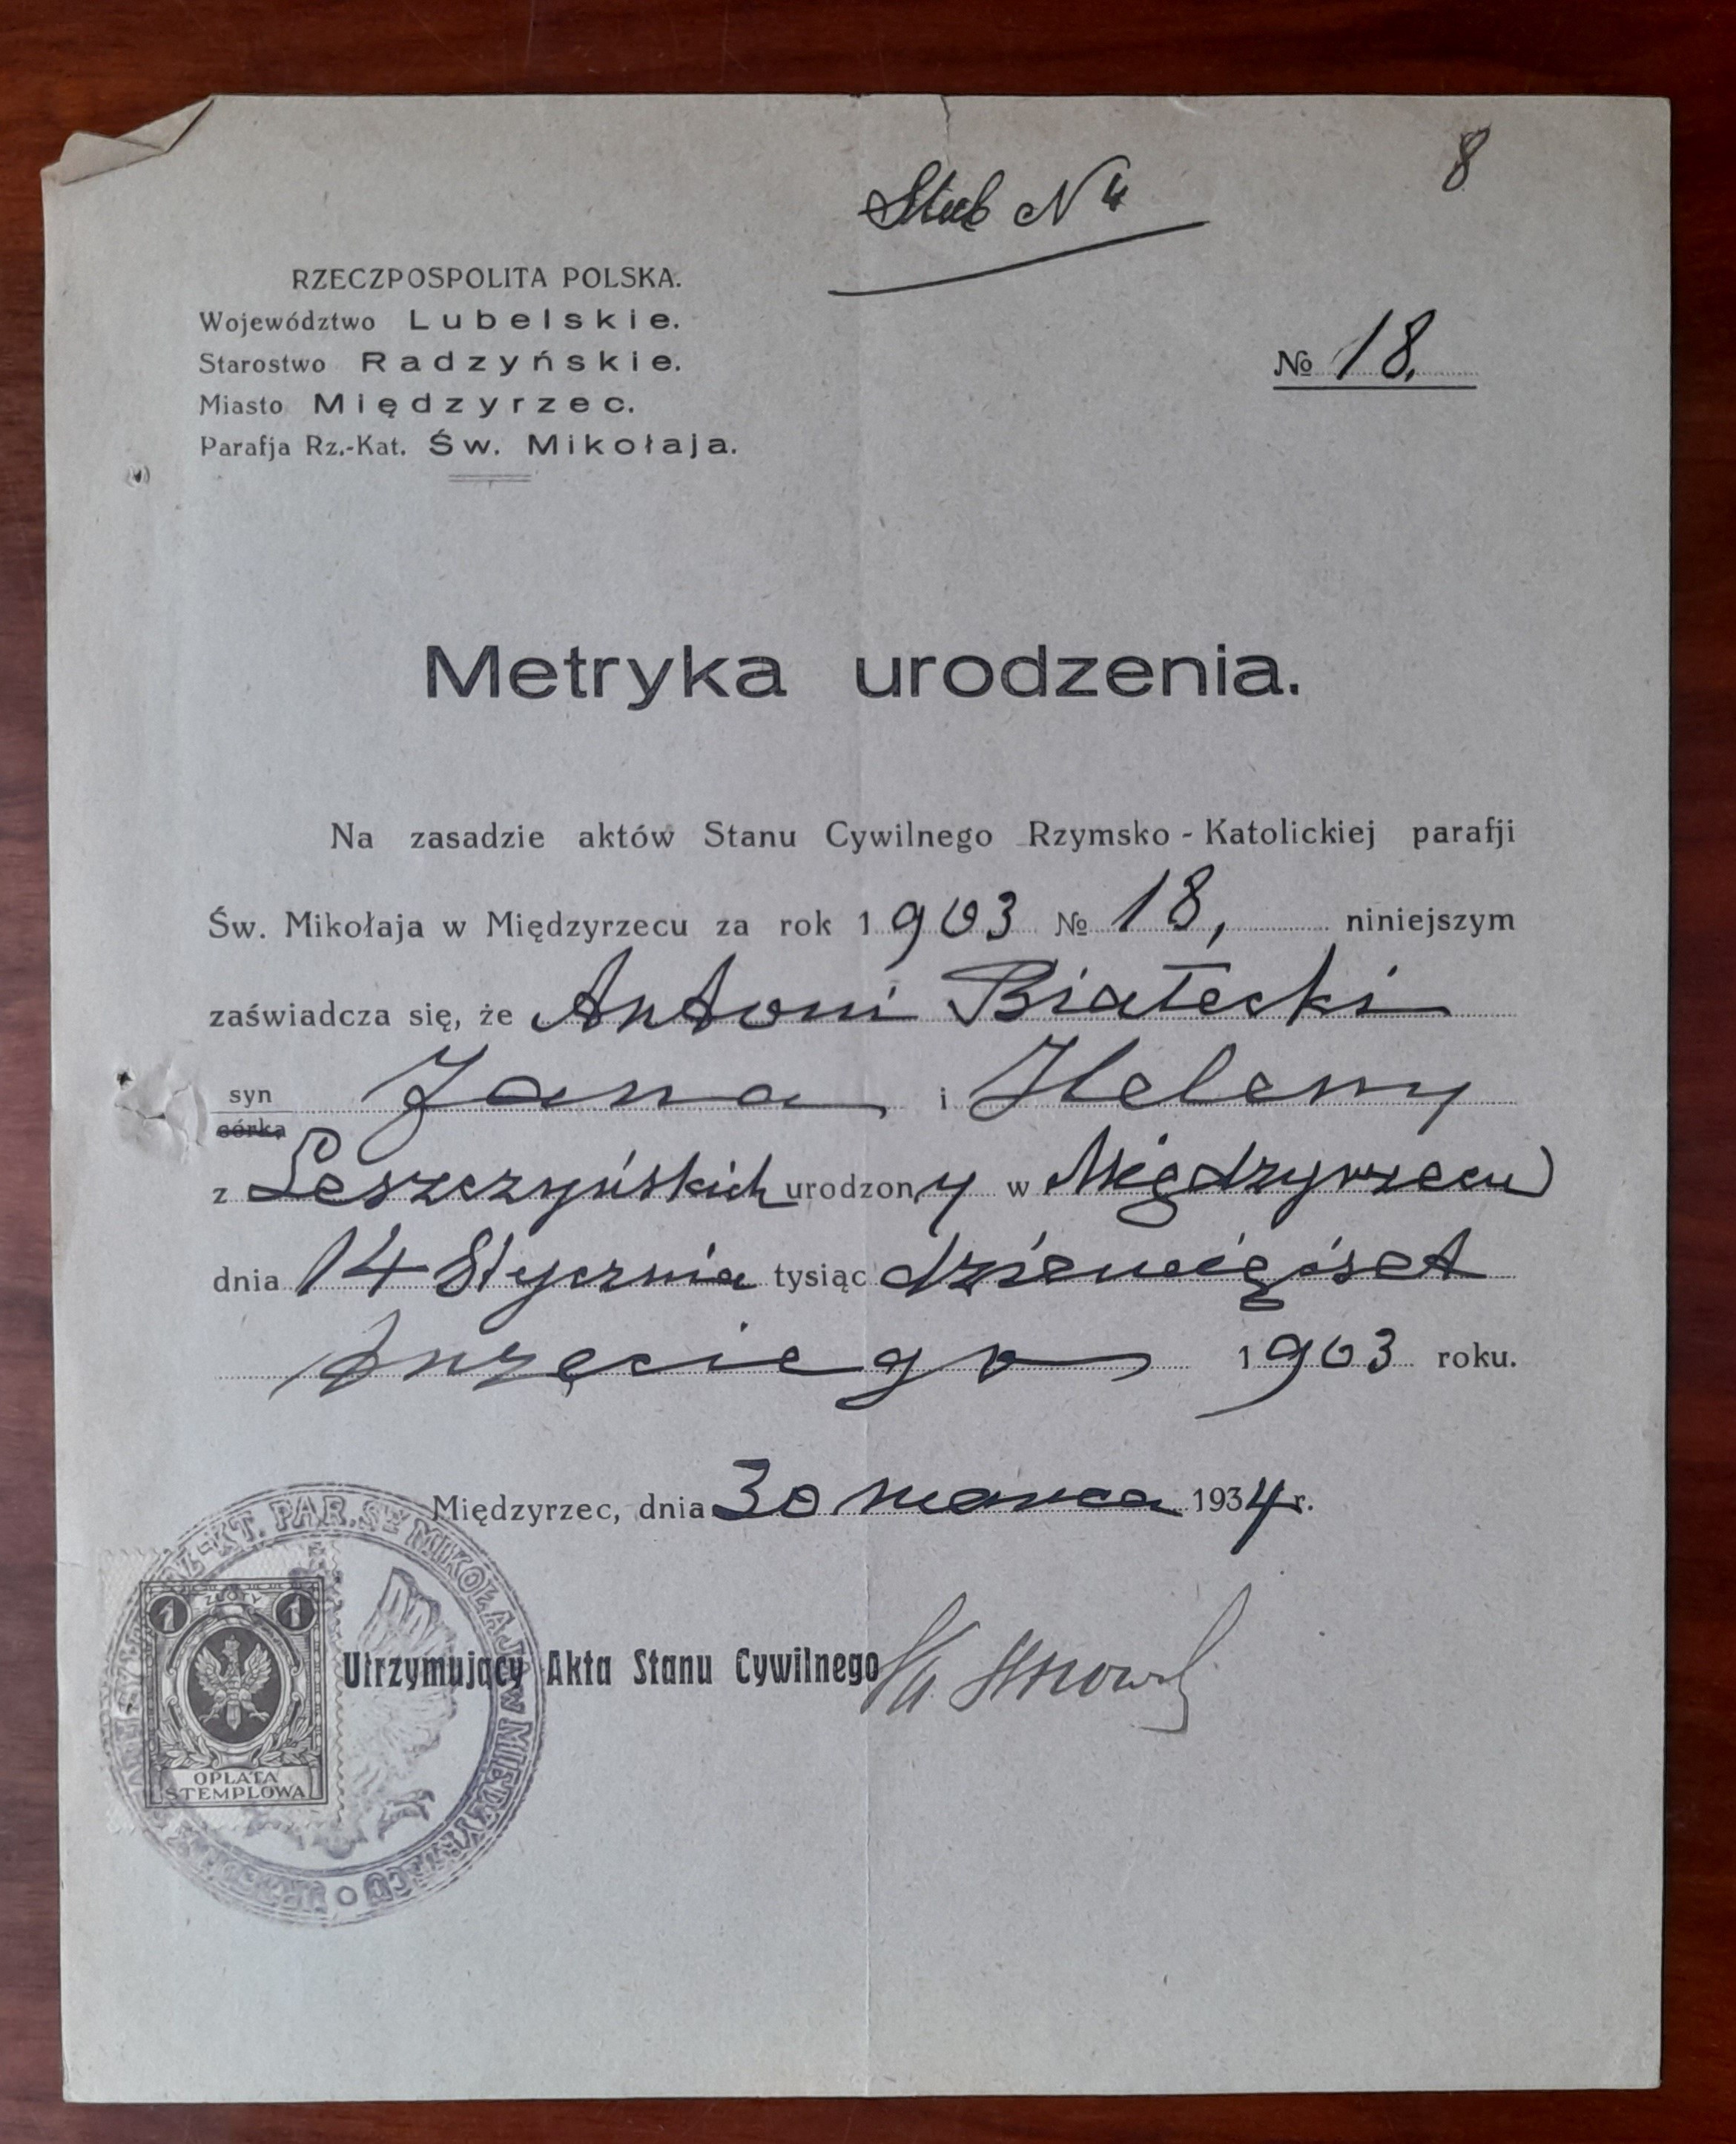 8
Ślub N 4
RZECZPOSPOLITA POLSKA.
Województwo Lubelskie.
Starostwo Radzyńskie.
№ 18.
Miasto Międzyrzec.
Parafja Rz.-Kat. Św. Mikołaja.
Metryka urodzenia.
Na zasadzie aktów Stanu Cywilnego Rzymsko-Katolickiej parafji
Św. Mikołaja w Międzyrzecu za rok 1903 № 18, niniejszym
zaświadcza się, że Antoni Białecki
syn Jana i Heleny
córka
z Leszczyńskich urodzony w Międzyrzecu
dnia 14 Stycznia tysiąc dziewięćset
trzeciego 1903 roku.
Międzyrzec, dnia 30 marca 1934 r.
Utrzymujący Akta Stanu Cywilnego
KT. PAR. ŚW MIKOŁAJA W MIĘDZYRZECU
1 ZŁOTY 1
OPŁATA
STEMPLOWA